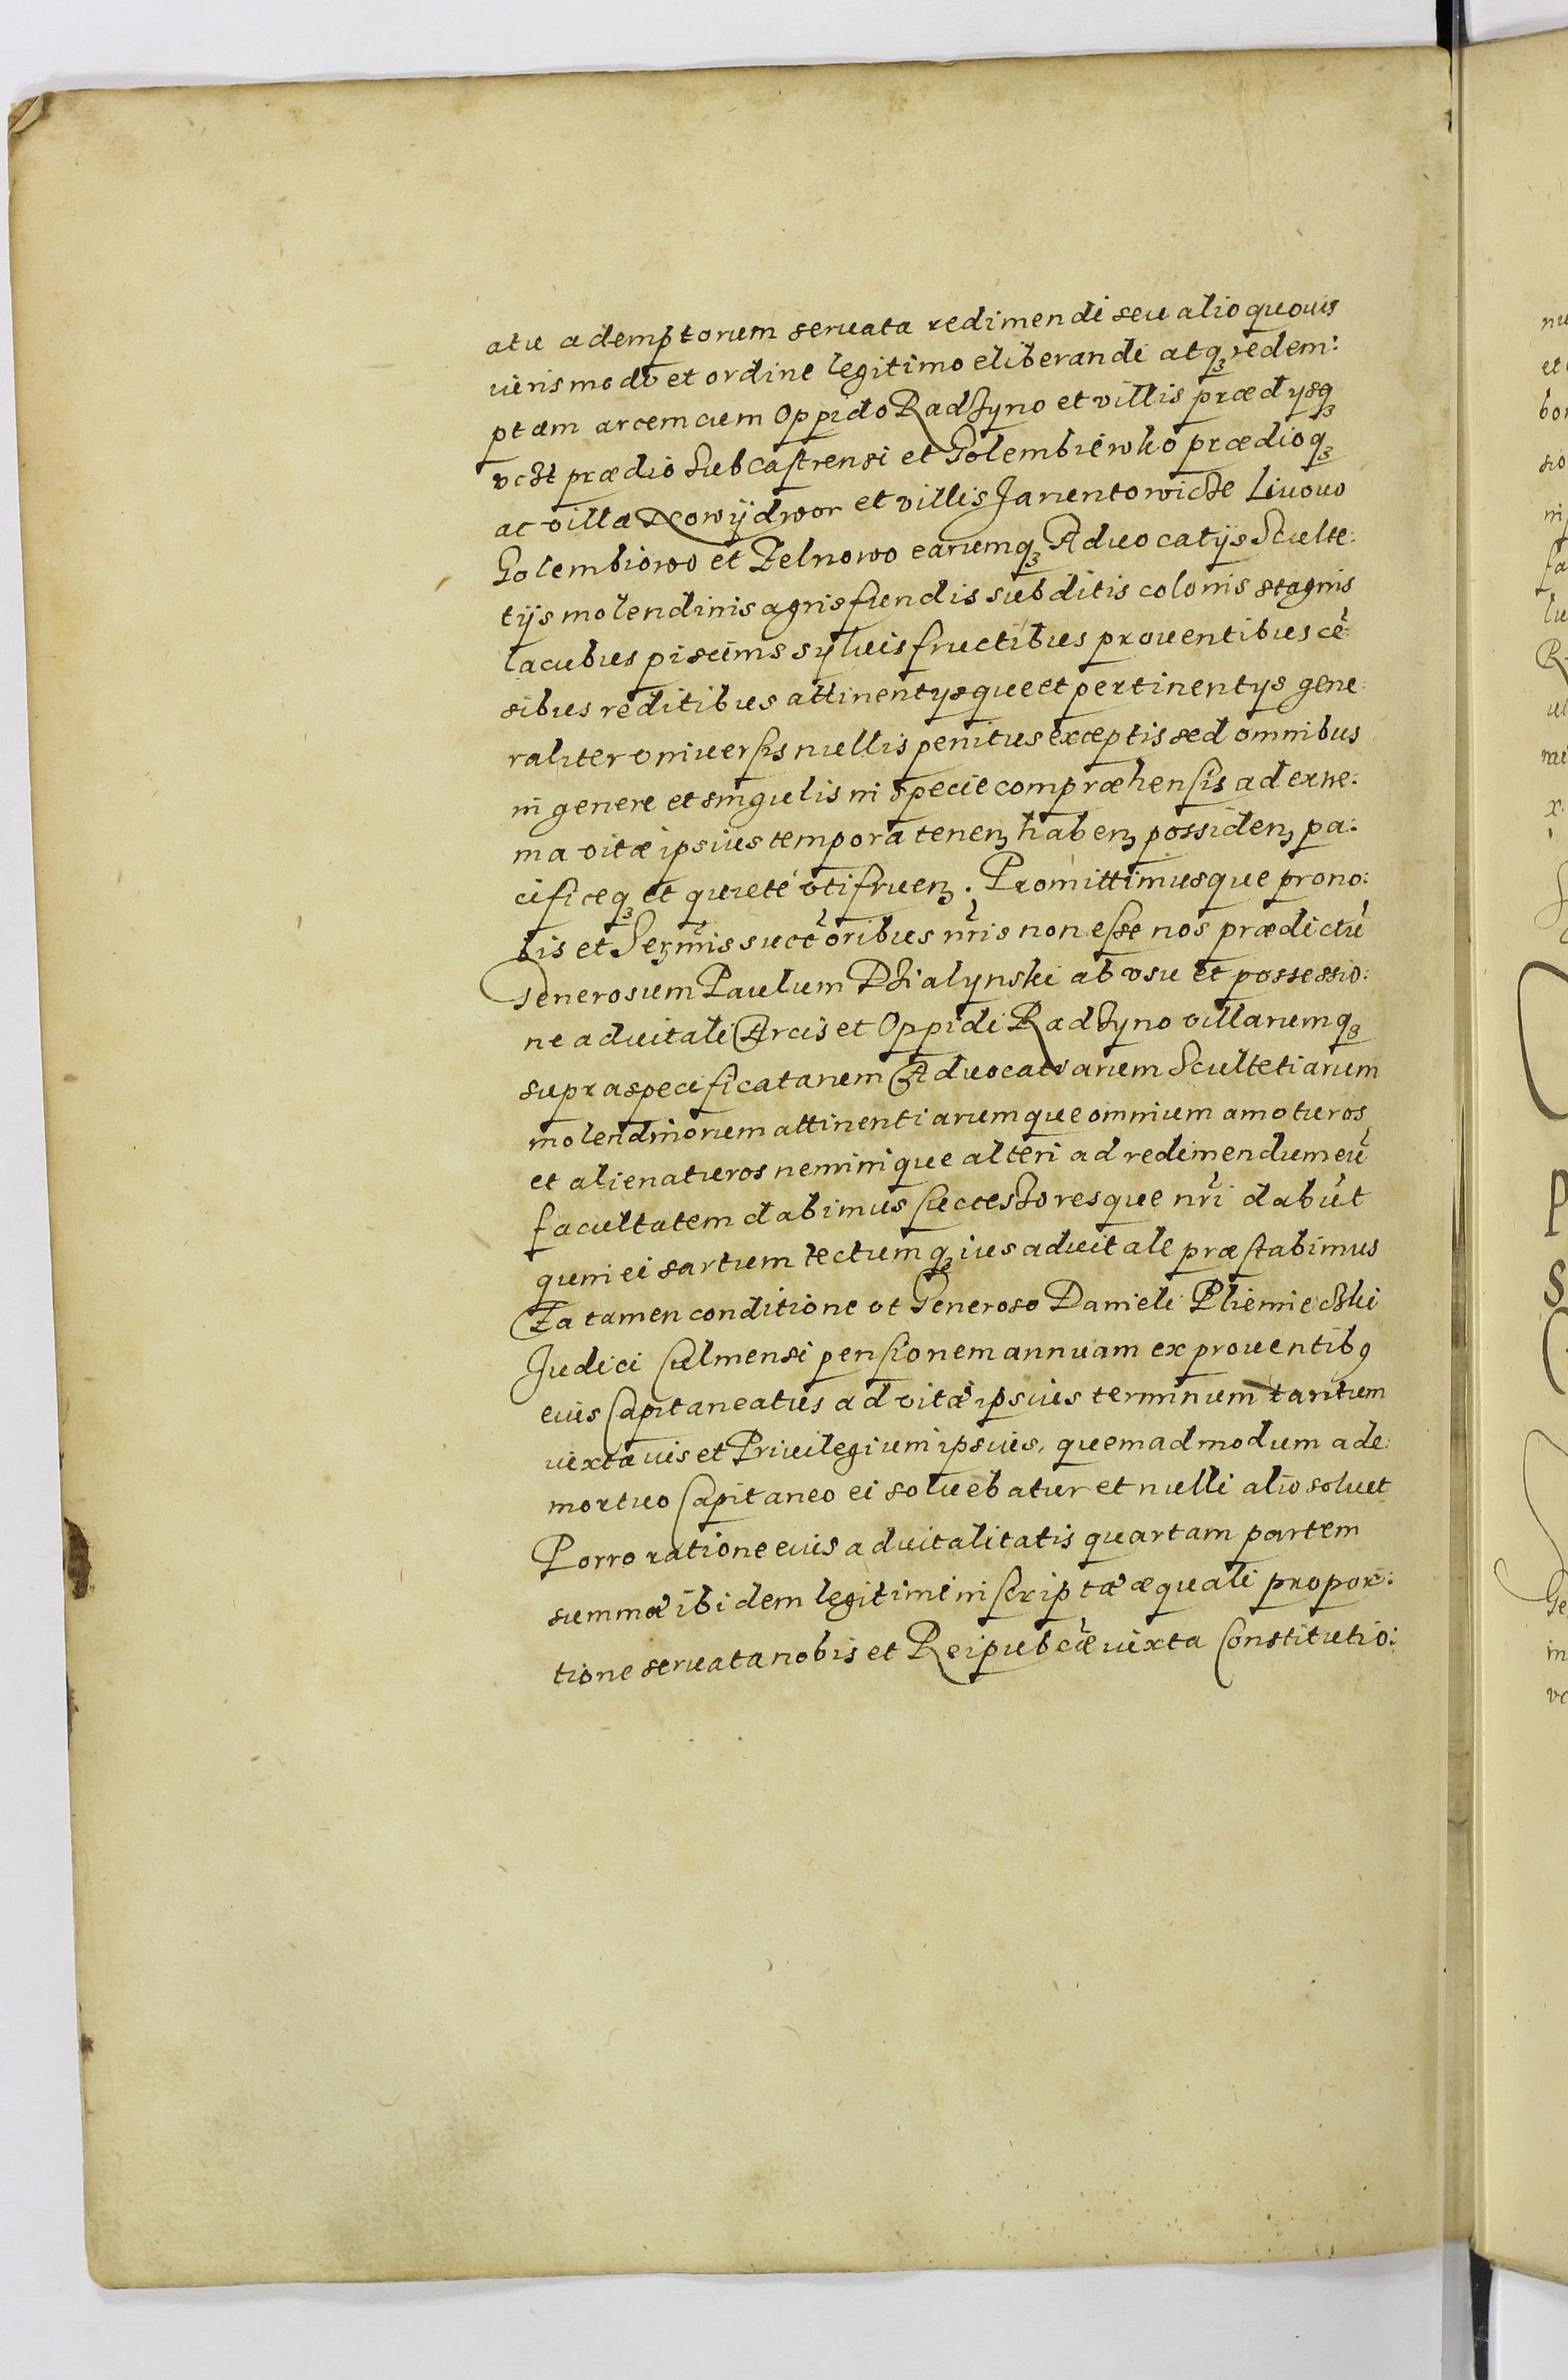 atu ademptorum seruata redimendi seu alio quouis
iuris modo et ordine legitimo eliberandi atqꝫ redem:
ptam arcem cum Oppido Radzyno et villis prædysqꝫ
vczt prædio Subcastrensi et Golembiewko prædioqꝫ
ac villa Nowÿdwor et villis Jarentowicze Liuouo
Golembiowo et Zelnowo earumqꝫ Aduocatÿs Sculte:
tÿs molendinis agris fundis subditis colonis stagnis
lacubus piscinis syluis fructibus prouentibus cē:
sibus reditibus attinentysque et pertinentys gene:
raliter vniuersis nullis penitus exceptis sed omnibus
in genere et singulis in specie compræhensis ad extre:
ma vitæ ipsius tempora tenenꝫ habenꝫ possidenꝫ pa:
cificeqꝫ et quiete vtifruenꝫ. Promittimusque pro no:
bis et Serꝫmis succoribus nris non esse nos prædictū
Generosum Paulum Dzialynski ab vsu et possessio:
ne aduitali Arcis et Oppidi Radzyno villarumqꝫ
supraspecificatarum Aduocatiarum Scultetiarum
molendinorum attinentiarumque omnium amoturos
et alienaturos neminique alteri ad redimendum eū
facultatem dabimus successoresque nri dabūt
quin ei sartum tectumqꝫ ius aduitale præstabimus
Ea tamen conditione vt Generoso Danieli Pliemieczki
Judici Culmensi pensionem annuam ex prouentibꝰ
eius Capitaneatus ad vitæ ipsius terminum tantum
iuxta ius et Priuilegium ipsius, quemadmodum a de:
mortuo Capitaneo ei soluebatur et nulli alio soluet
Porro ratione eius aduitalitatis quartam partem
summæ ibidem legitime inscriptæ æquali propor:
tione seruata nobis et Reipubcæ iuxta Constitutio: